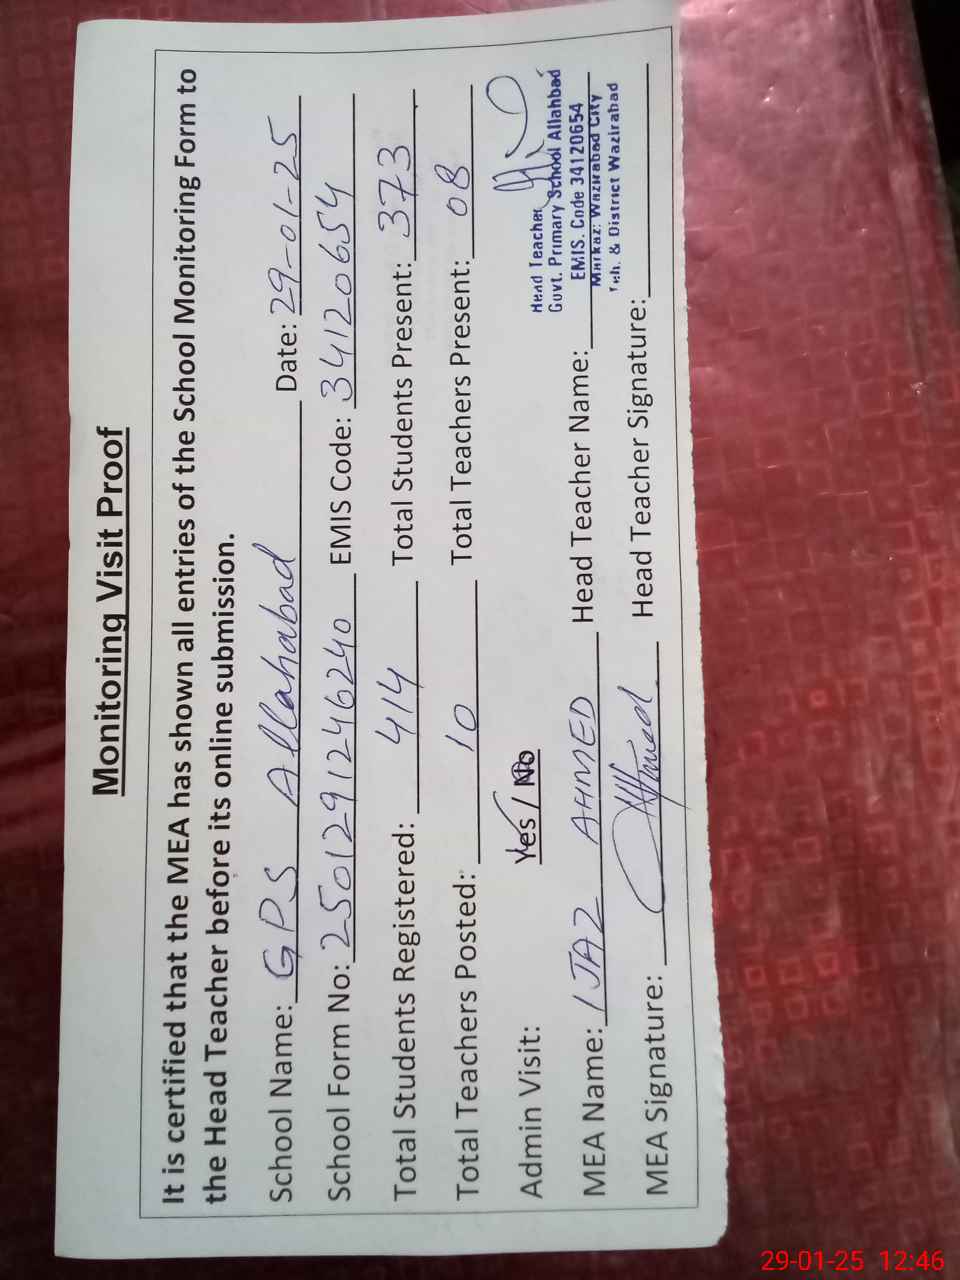 Monitoring Visit Proof
It is certified that the MEA has shown all entries of the School Monitoring Form to
the Head Teacher before its online submission.
School Name: GPS Allahabad Date: 29-01-25
School Form No: 2501291246240 EMIS Code: 34120654
Total Students Registered: 414 Total Students Present: 373
Total Teachers Posted: 10 Total Teachers Present: 08
Admin Visit: Yes / No
MEA Name: IJAZ AHMED Head Teacher Name:
MEA Signature: Head Teacher Signature:
Head Teacher
Govt. Primary School Allahbad
EMIS. Code 34120654
Markaz: Wazirabad City
Teh. & District Wazirabad
29-01-25 12:46